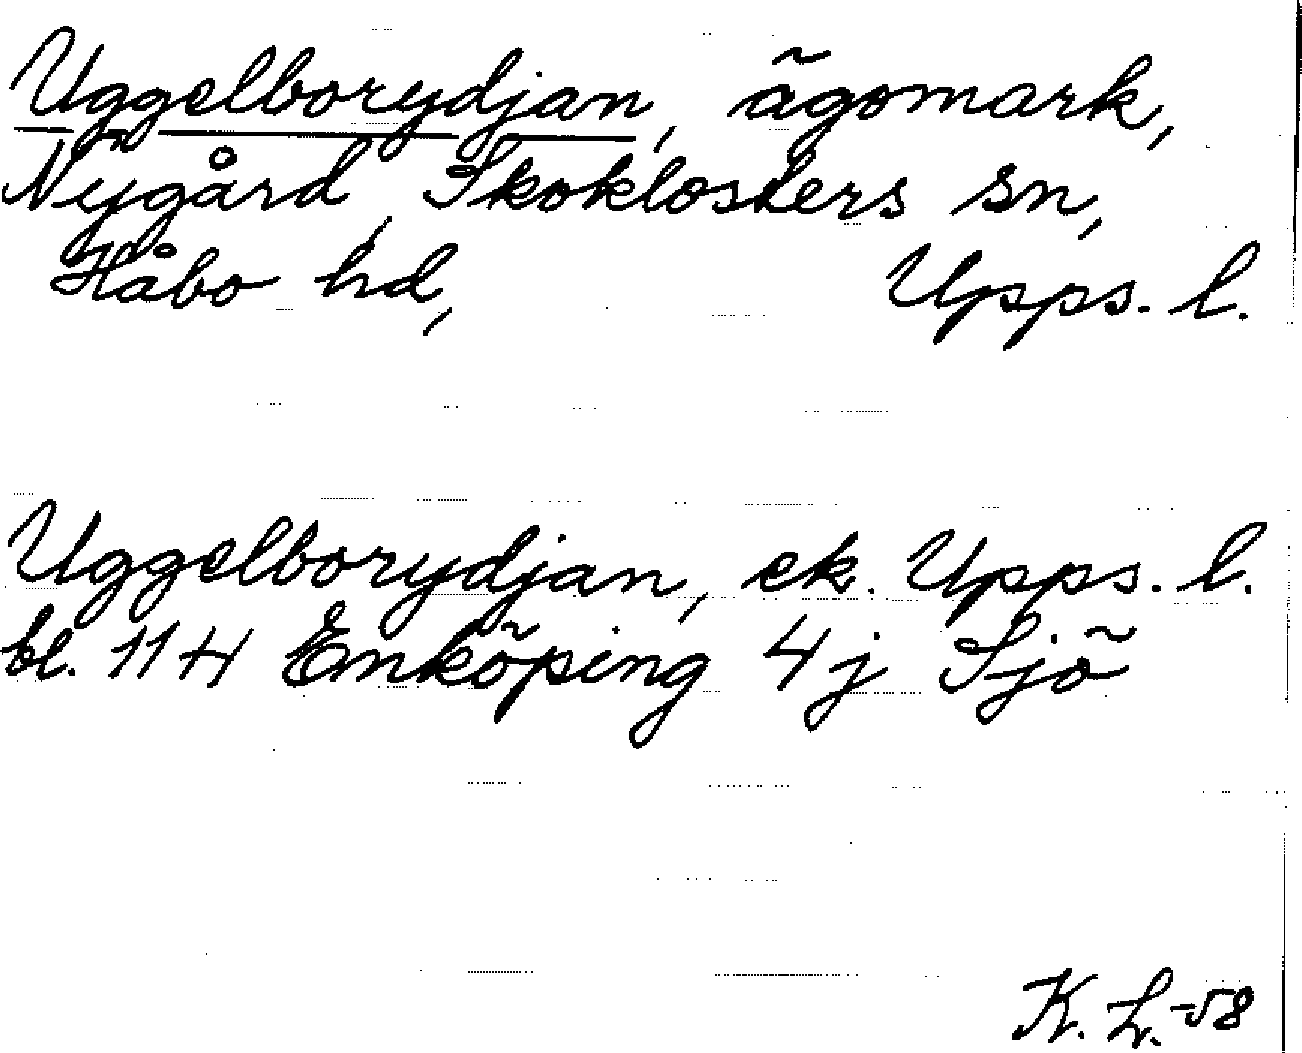 Uggelborydjan, ägomark,
Nygård, Skoklosters sn,
Håbo hd, Upps. l.
Uggelborydjan, ek. Upps. l.
bl. 11 H Enköping 4 j Sjö
K. L. -58